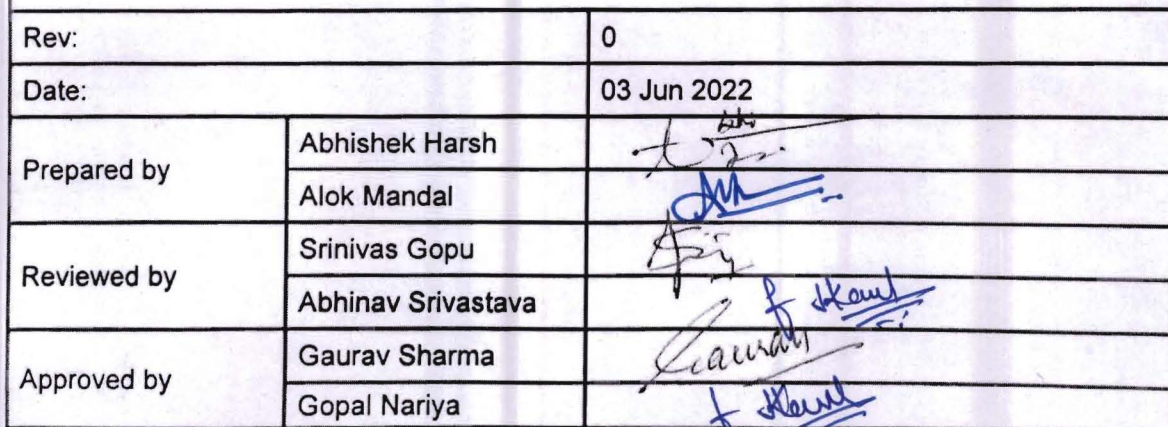 Rev: 0
Date: 03 Jun 2022
Prepared by
Abhishek Harsh
Alok Mandal
Reviewed by
Srinivas Gopu
Abhinav Srivastava
Approved by
Gaurav Sharma Gaurav
Gopal Nariya